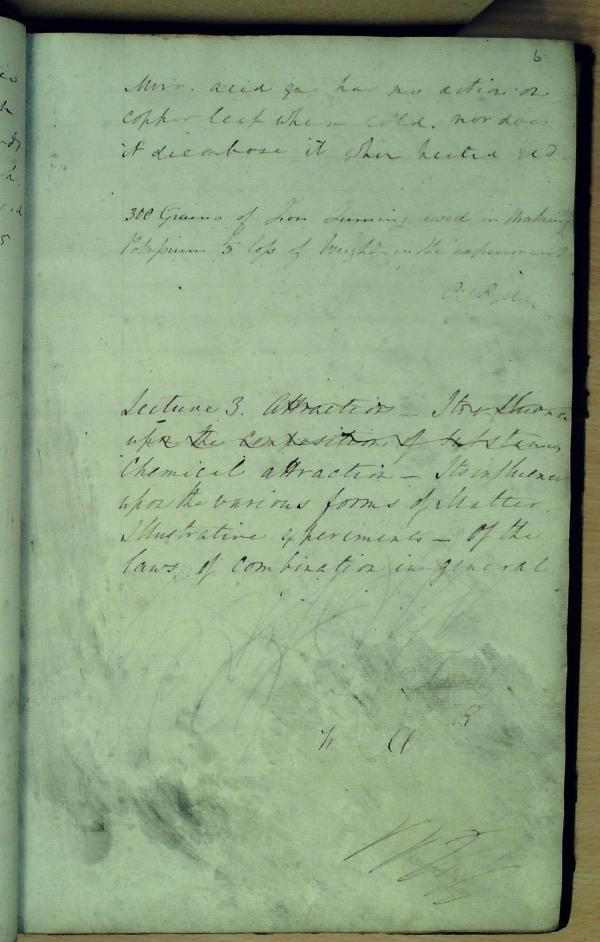 6
Mur. acid gas has no action on
copper leaf when cold. nor does
it decombose it when heated red
300 Grains of Iron Turning used in making
Potassium 5 loss of Weight in the experiment
Lecture 3. Attraction – Its
upon the composition of substances
Chemical attraction – Its influence
upon the various forms of Matter.
Illustrative experiments – Of the
laws of combination in general